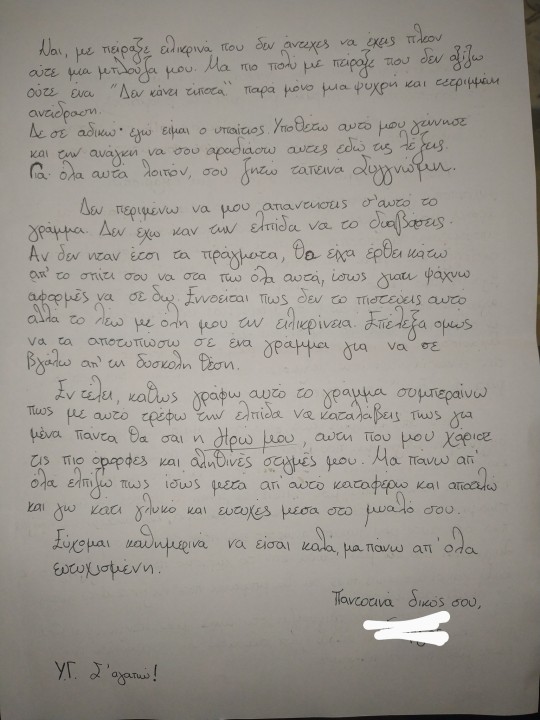 Ναι, με πείραξε ειλικρινά που δεν άντεχες να έχεις πλέον
ούτε μια μπλούζα μου. Μα πιο πολύ με πείραξε που δεν αξίζω
ούτε ένα "Δεν κάνει τίποτα" παρά μόνο μια ψυχρή και τετριμμένη
αντίδραση.
Δε σε αδικώ· εγώ είμαι ο υπαίτιος. Υποθέτω αυτό μου γέννησε
και την ανάγκη να σου αραδιάσω αυτές εδώ τις λέξεις.
Για όλα αυτά λοιπόν, σου ζητώ ταπεινά Συγγνώμη.
Δεν περιμένω να μου απαντήσεις σ'αυτό το
γράμμα. Δεν έχω καν την ελπίδα να το διαβάσεις.
Αν δεν ήταν έτσι τα πράγματα, θα είχα έρθει κάτω
απ'το σπίτι σου να στα πω όλα αυτά, ίσως γιατί ψάχνω
αφορμές να σε δω. Εννοείται πως δεν το πιστεύεις αυτό
αλλά το λέω με όλη μου την ειλικρίνεια. Επέλεξα όμως
να τα αποτυπώσω σε ένα γράμμα για να σε
βγάλω απ'τη δύσκολη θέση.
Εν τέλει, καθώς γράφω αυτό το γράμμα συμπεραίνω
πως με αυτό τρέφω την ελπίδα να καταλάβεις πως για
μένα πάντα θα σαι η Ηρώ μου, αυτή που μου χάρισε
τις πιο όμορφες και αληθινές στιγμές μου. Μα πάνω απ'
όλα ελπίζω πως ίσως μετά απ'αυτό καταφέρω και αποτελώ
και γω κάτι γλυκό και ευτυχές μέσα στο μυαλό σου.
Εύχομαι καθημερινά να είσαι καλά, μα πάνω απ'όλα
ευτυχισμένη.
Παντοτινά δικός σου,
Υ.Γ. Σ'αγαπώ!